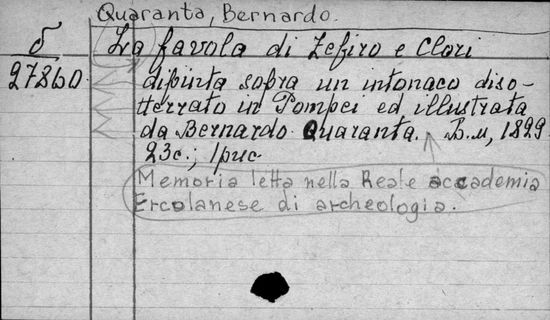 Quaranta, Bernardo.
δ La favola di Zefiro e Clori
27860. dipinta sopra un intonaco diso-
tterrato in Pompei ed illustrata
da Bernardo Quaranta. B.м, 1829.
23с.; 1рис.
Memoria letta nella Reale accademia
Ercolanese di archeologia.